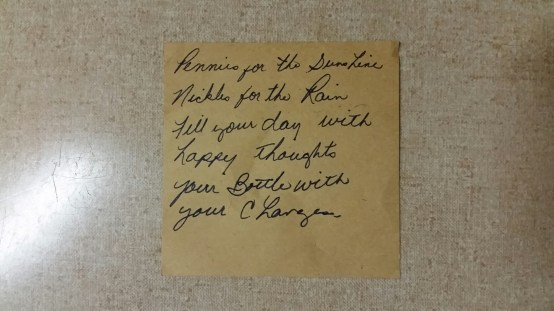 Pennies for the Sunshine
Nickles for the Rain
Fill your day with
happy thoughts
your Bottle with
your Change